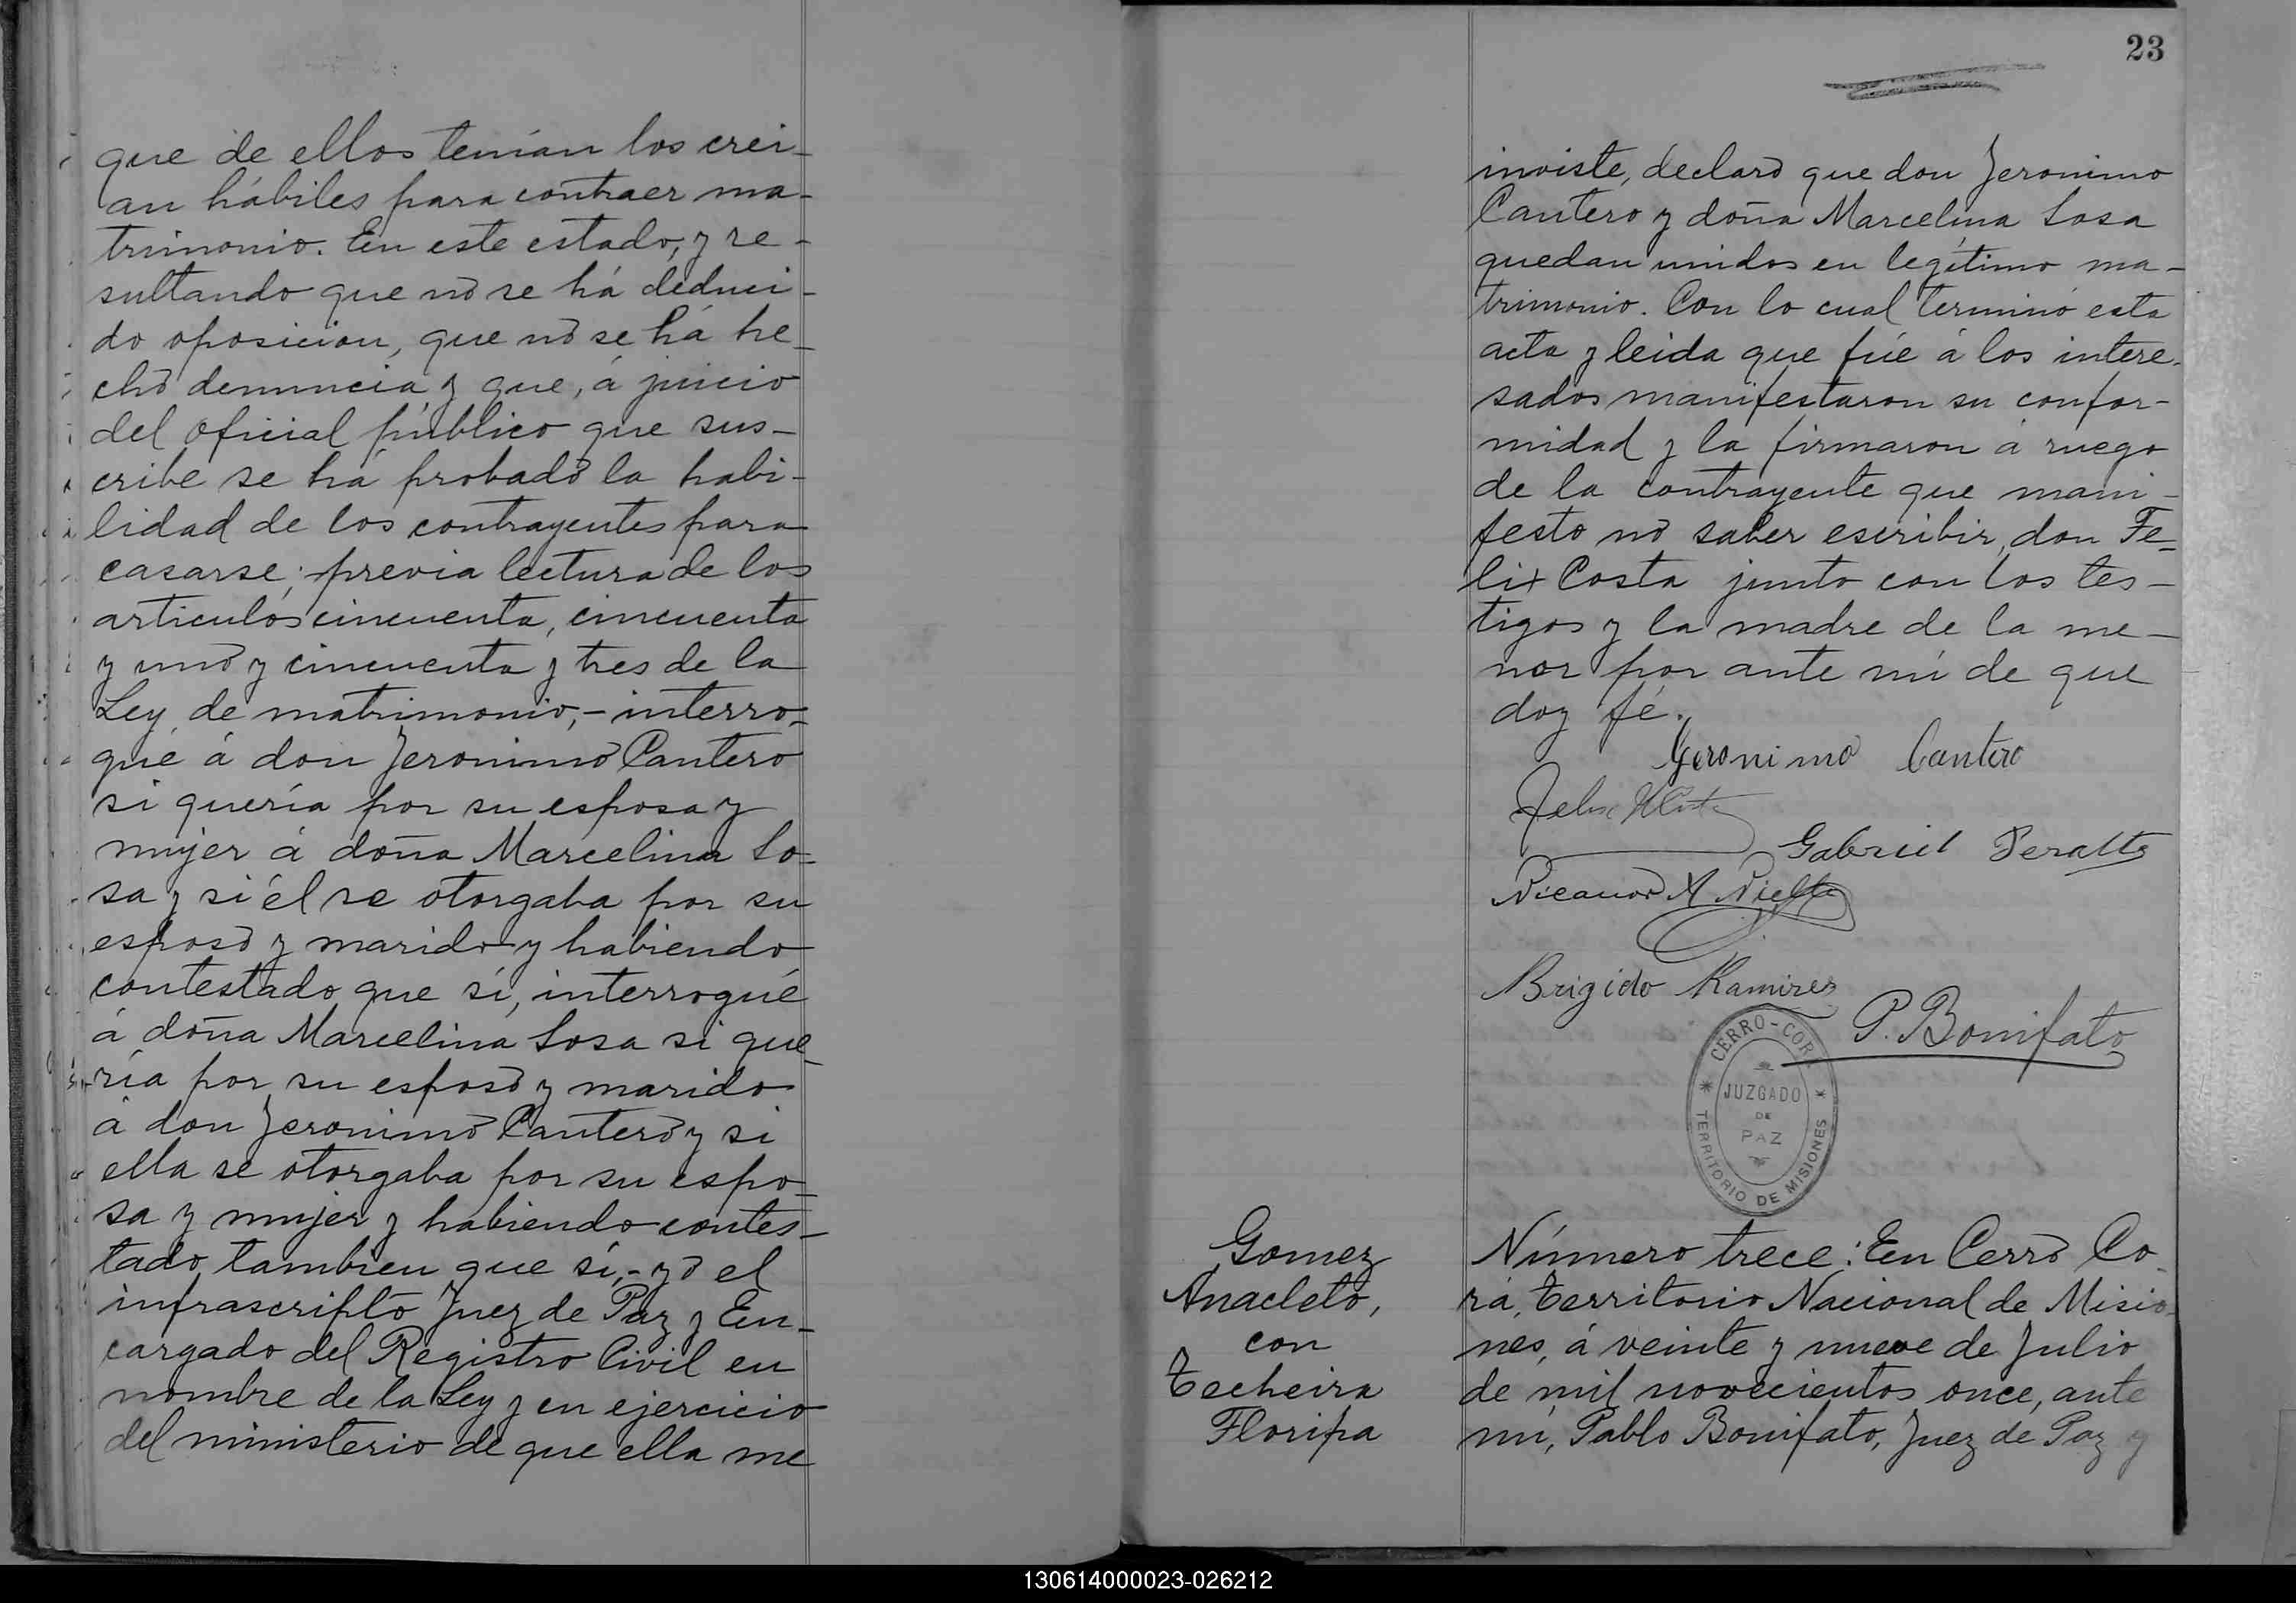 que de ellos tenían los crei-
an hábiles para contraer ma-
trimonio. En este estado, y re-
sultando que nó se há deduci-
do oposicion, que nó se há he-
chó denuncia y que, á juicio
del oficial público que sus-
cribe se há probadó la habi-
lidad de los contrayentes para
casarse; previa lectura de los
articulos cincuenta, cincuenta
y unó y cincuenta y tres de la
Ley de matrimonio,- interro-
gué á don Jeronimó Cantero
si quería por su esposa y
mujer á doña Marcelina So-
sa y si él se otorgaba por su
esposó y marido y habiendo
contestado que sí, interrogué
á doña Marcelina Sosa si que-
ría por su esposó y marido
á don Jeronimó Canteró y si
ella se otorgaba por su espo-
sa y mujer y habiendo contes-
tado tambien que sí,- yó el
infrascriptó Juez de Paz y En-
cargado del Registro Civil en
nombre de la Ley y en ejercicio
del ministerio de que ella me
23
inviste, declaró que don Jeronimo
Cantero y doña Marcelina Sosa
quedan unidos en legítimo ma-
trimonio. Con lo cual terminó esta
acta y leida que fúe á los intere-
sados manifestaron su confor-
midad y la firmaron á ruego
de la contrayente que mani-
festo nó saber escribir, don Fe-
lix Costa junto con los tes-
tigos y la madre de la me-
nor por ante mí de que
doy fé.
Geronimo Cantero
Gabriel Peralta
Nicanor A.
Brigido Ramirez
P. Bonifato
CERRO-COR
JUZGADO
DE
PAZ
TERRITORIO DE MISIONES
Gomez
Anacleto,
con
Techeira
Floripa
Número trece: En Cerró Co-
rá, Territorio Nacional de Misio-
nes, á veinte y nueve de Julio
de mil novecientos once, ante
mí, Pablo Bonifato, Juez de Paz y
130614000023-026212